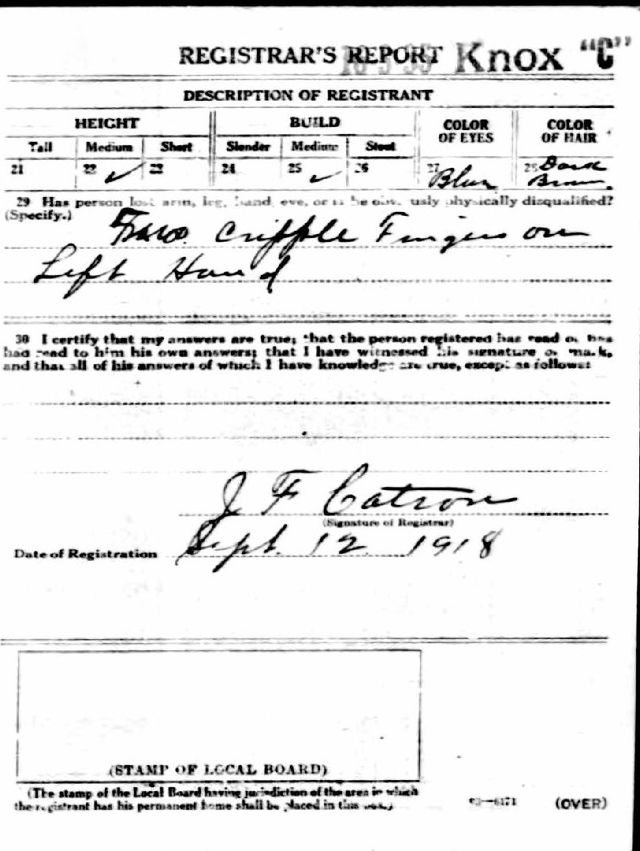 REGISTRAR'S REPORT Knox "C"
DESCRIPTION OF REGISTRANT
HEIGHT BUILD COLOR OF EYES COLOR OF HAIR
Tall Medium Short Slender Medium Stout
21 22 ✓ 23 24 25 ✓ 26 27 Blue 28 Dark Brown
29 Has person lost arm, leg, hand, eye, or is he obviously physically disqualified?
(Specify.) Two Cripple Fingers on
Left Hand
30 I certify that my answers are true; that the person registered has read or has
had read to him his own answers; that I have witnessed his signature or mark,
and that all of his answers of which I have knowledge are true, except as follows:
J F Catron
(Signature of Registrar)
Date of Registration Sept. 12 1918
(STAMP OF LOCAL BOARD)
(The stamp of the Local Board having jurisdiction of the area in which
the registrant has his permanent home shall be placed in this box.)
03—6171 (OVER)